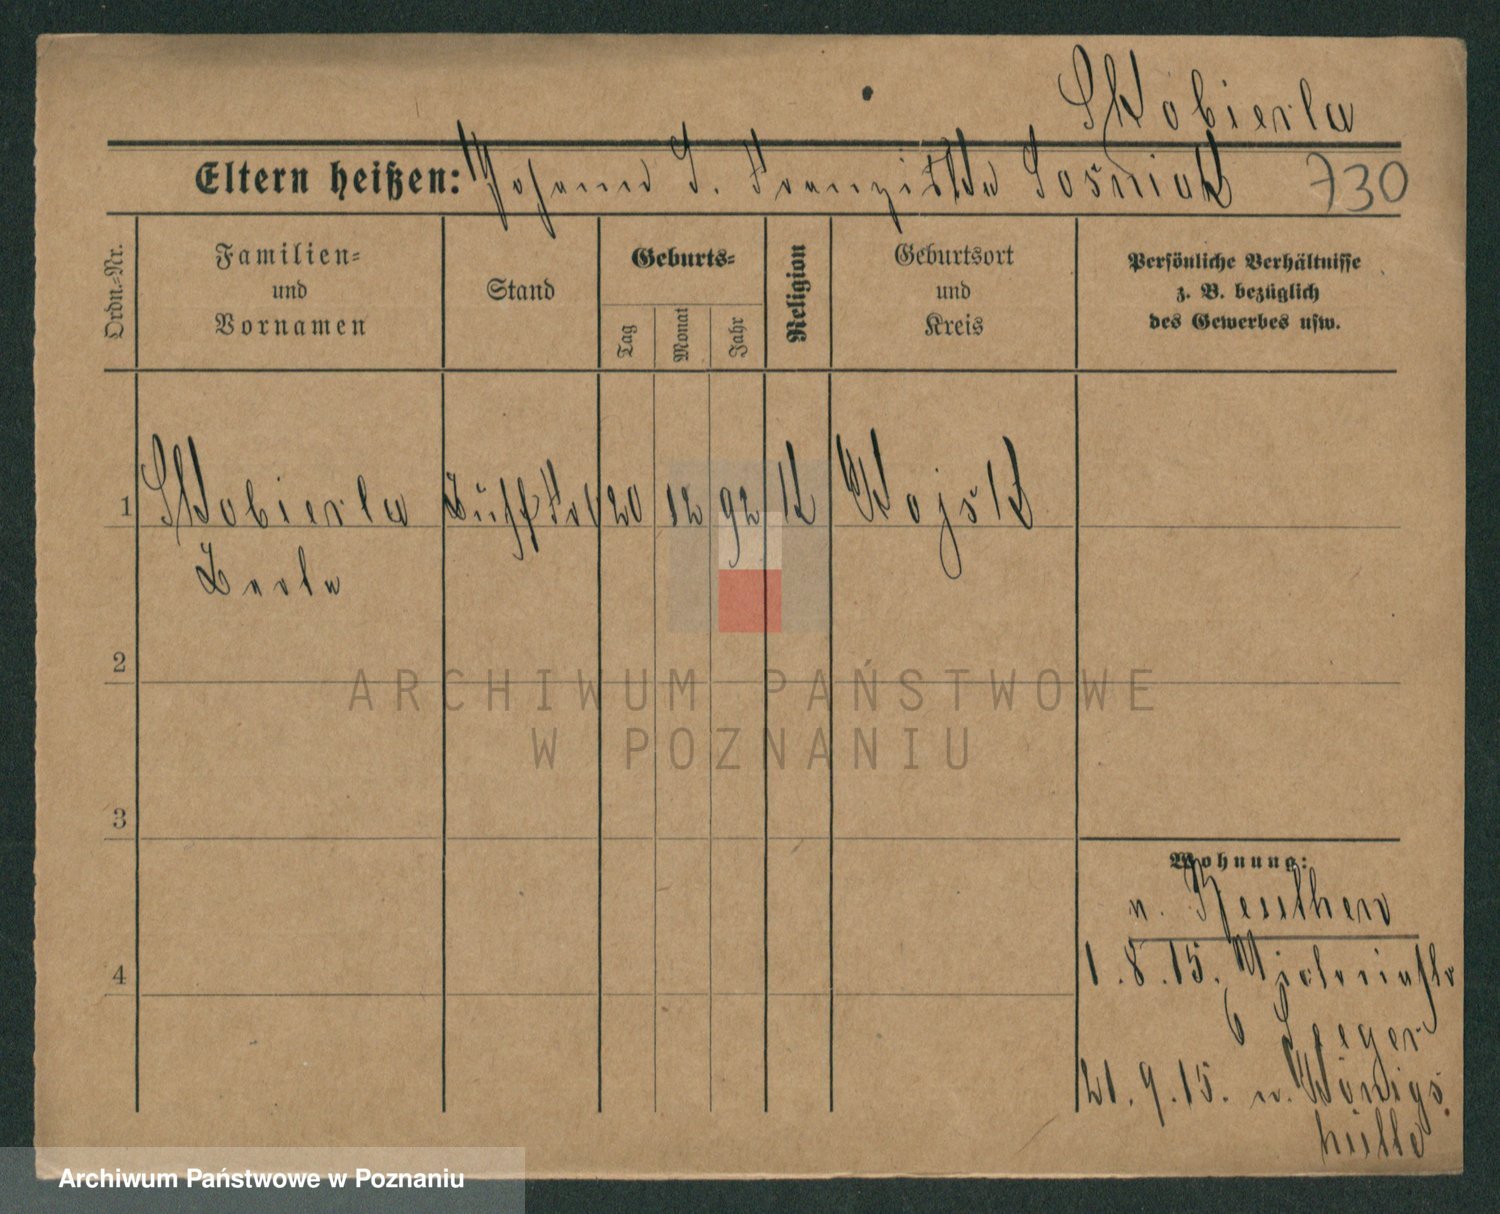 Skobierla
Eltern heißen: Johann u. Franziska Sosniok 730
Ordn.-Nr.
Familien-
und
Vornamen
Stand
Geburts-
Tag
Monat
Jahr
Religion
Geburtsort
und
Kreis
Persönliche Verhältnisse
z. B. bezüglich
des Gewerbes usw.
1 Skobierla 20 12 92 k
Karla
2
ARCHIWUM PAŃSTWOWE
W POZNANIU
3
Wohnung:
n. Beuthen
4
1.8.15. Victoriastr
6 Seeger
21.9.15. n. Königs
hütte
Archiwum Państwowe w Poznaniu